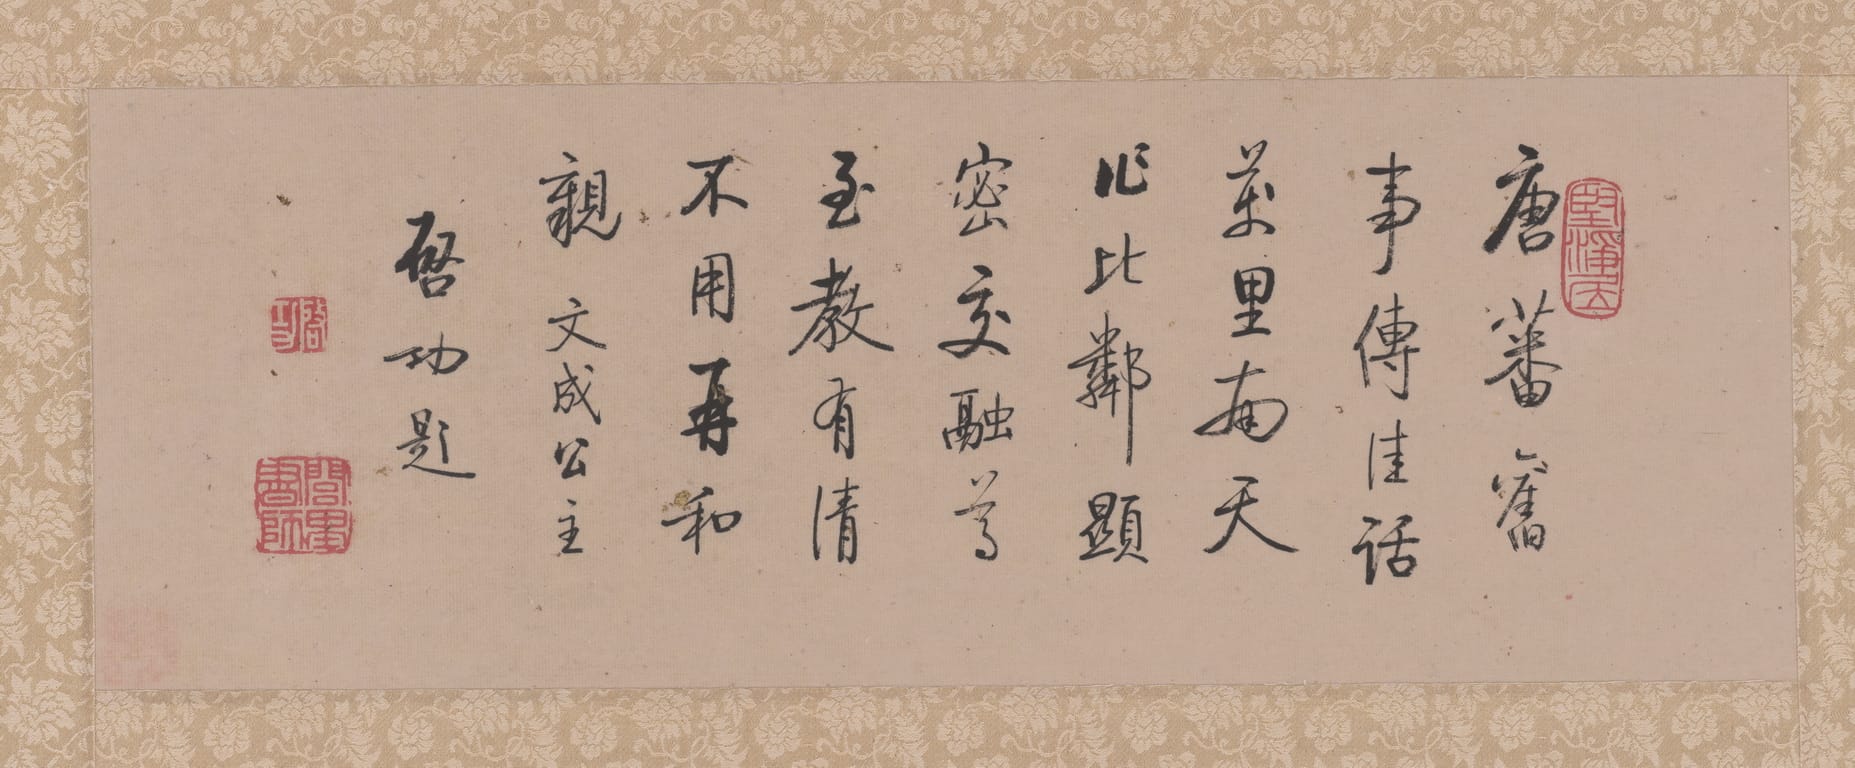 唐蕃舊
事傳佳話
萬里南天
作比鄰顯
密交融尊
至教有情
不用再和
親 文成公主
啓功題
啓功